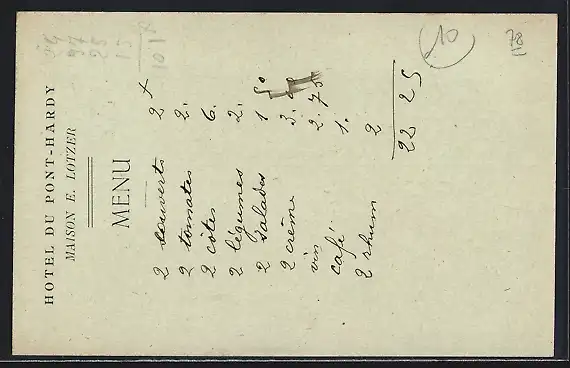 HOTEL DU PONT-HARDY
MAISON E. LOTZER
MENU
2 couverts 2
2 tomates 2.
2 côtes 6.
2 légumes 2.
2 salades 1 50
2 crème 3.
vin 2.75
café 1.
2 rhum 2
22 25
10